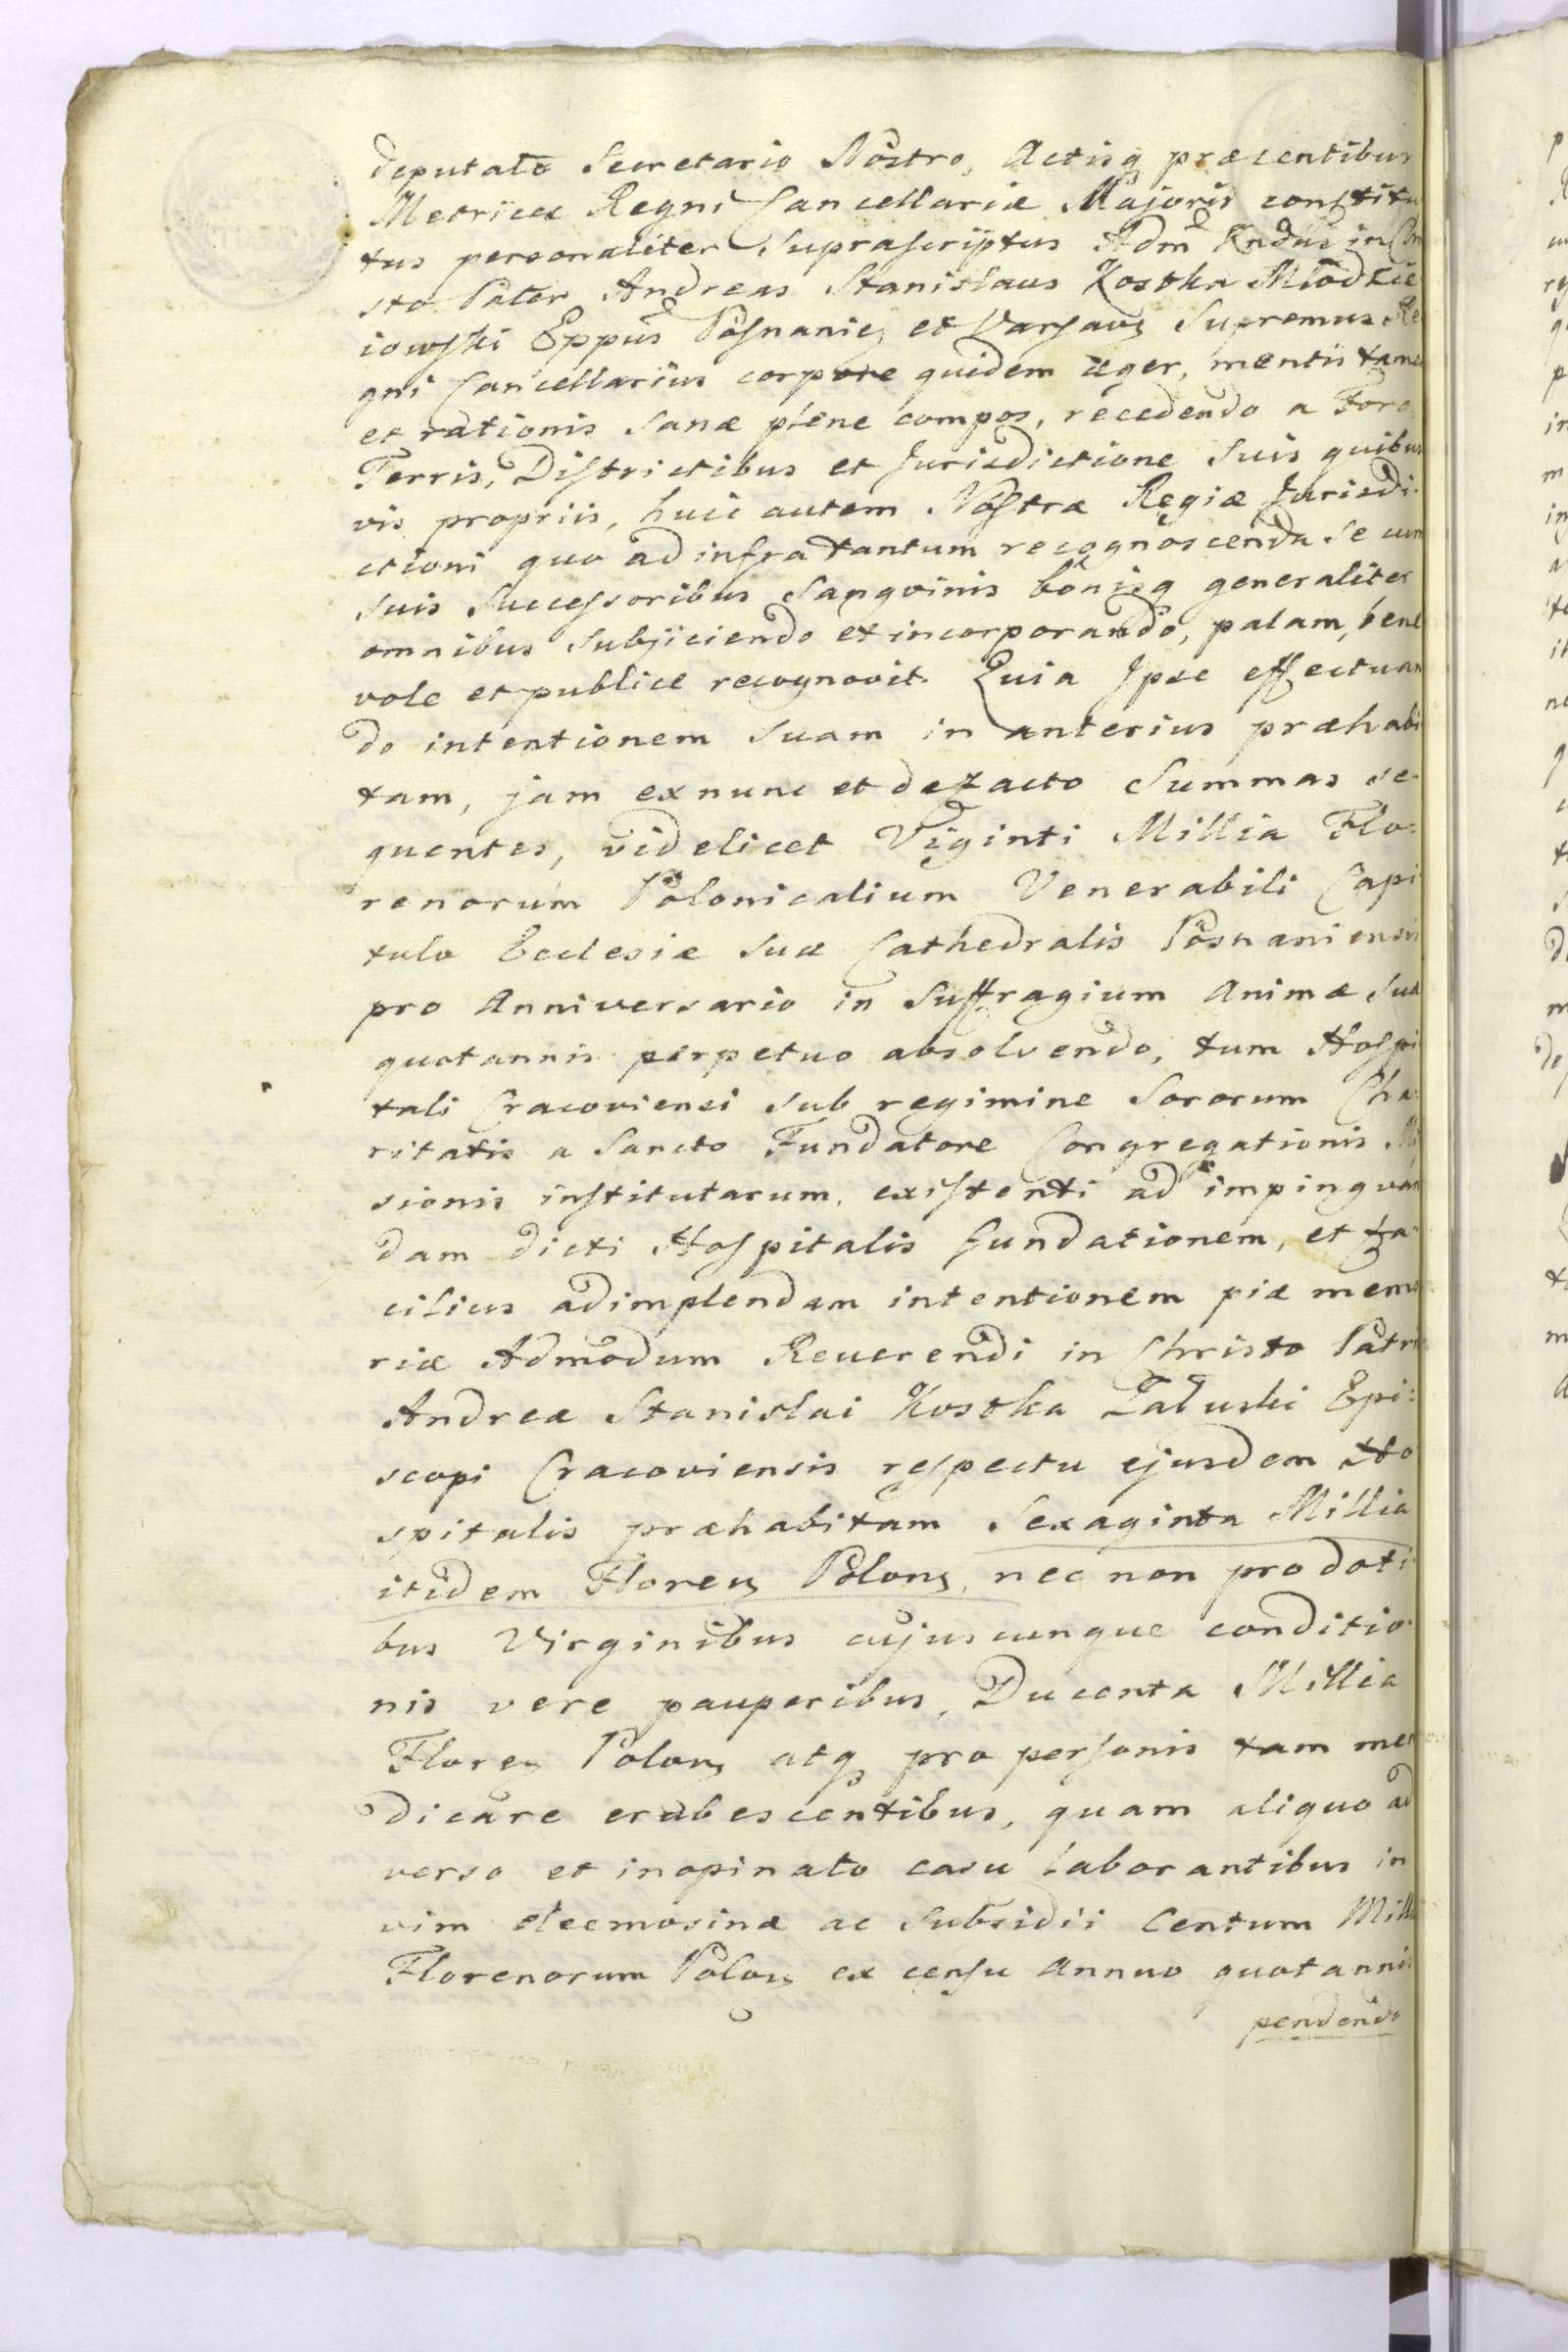 deputato Secretario Nostro, Actisq præsentibus
Metrices Regni Cancellariæ Majoris constitu
tus personaliter Suprascriptus Adm Rndus in Chri
sto Pater Andreas Stanislaus Kostka Młodzie
iowski Eppus Posnanie et Varsav Supremus Re
gni Cancellarius corpore quidem æger, mentis tame
et rationis Sanæ plene compos, recedendo a Foro
Terris, Districtibus et Jurisdictione Suis quibus
vis propriis, huic autem Nostræ Regiæ Jurisdi
ctioni quo ad infra tantum recognoscenda Se cum
Suis Successoribus Sangvinis bonisq generaliter
omnibus Subjiciendo et incorporando, palam, bene
vole et publice recognovit. Quia Ipse effectuan
do intentionem Suam in anterius præhabi
tam, jam ex nunc et de facto Summas se
quentes, videlicet Viginti Millia Flo:
renorum Polonicalium Venerabili Capi
tulo Ecclesiæ Suæ Cathedralis Posnaniensis
pro Anniversario in Suffragium Animæ Suæ
quotannis perpetuo absolvendo, tum Hospi
tali Cracoviensi Sub regimine Sororum Cha:
ritatis a Sancto Fundatore Congregationis Mi
sionis institutarum, existenti ad impingvan
dam dicti Hospitalis Fundationem, et fa:
cilius adimplendam intentionem piæ memo
riæ Admodum Reverendi in Christo Patris
Andreæ Stanislai Kostka Załuski Epi:
scopi Cracoviensis respectu ejusdem Ho
spitalis præhabitam Sexaginta Millia
itidem Floren Polon, nec non pro doti
bus Virginibus cujuscunque conditio
nis vere pauperibus, Ducenta Millia
Floren Polon atq pro personis tam men
dicare erubescentibus, quam aliquo ad
verso et inopinato casu laborantibus in
vim eleemosinæ ac Subsidii Centum Milli
Florenorum Polon ex censu annuo quotannis
pendendo